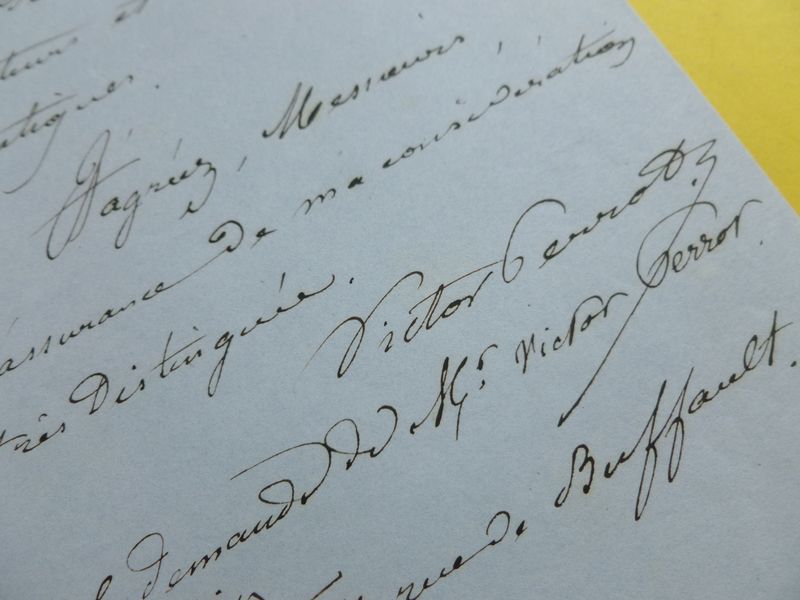 J'agréez, Messieurs,
assurance de ma considération
très Distinguée.
Victor Perrot
demande de Mr. Victor Perrot.
rue de Buffault.